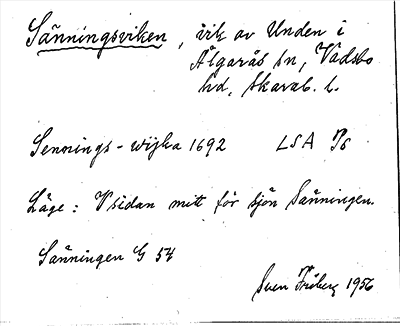 Sänningsviken, vik av Unden i
Älgarås sn, Vadsbo
hd, Skarab. l.
Sennings-wijka 1692 LSA P8
Läge: V sidan mitt för sjön Sänningen.
Sänningen G 54
Sven Friberg 1956